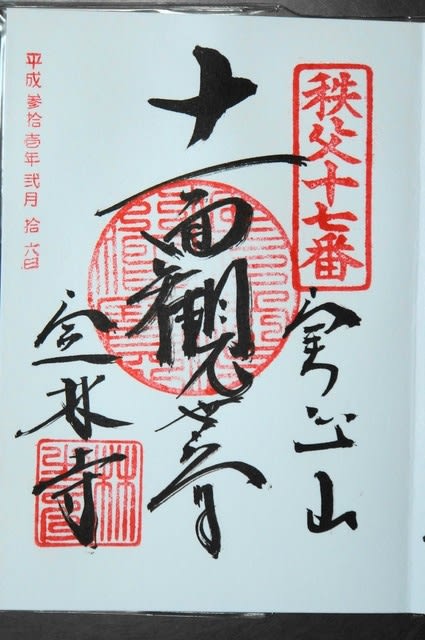 秩父十七番
實正山
十一面観世音
定林寺
平成参拾壱年弐月拾六日